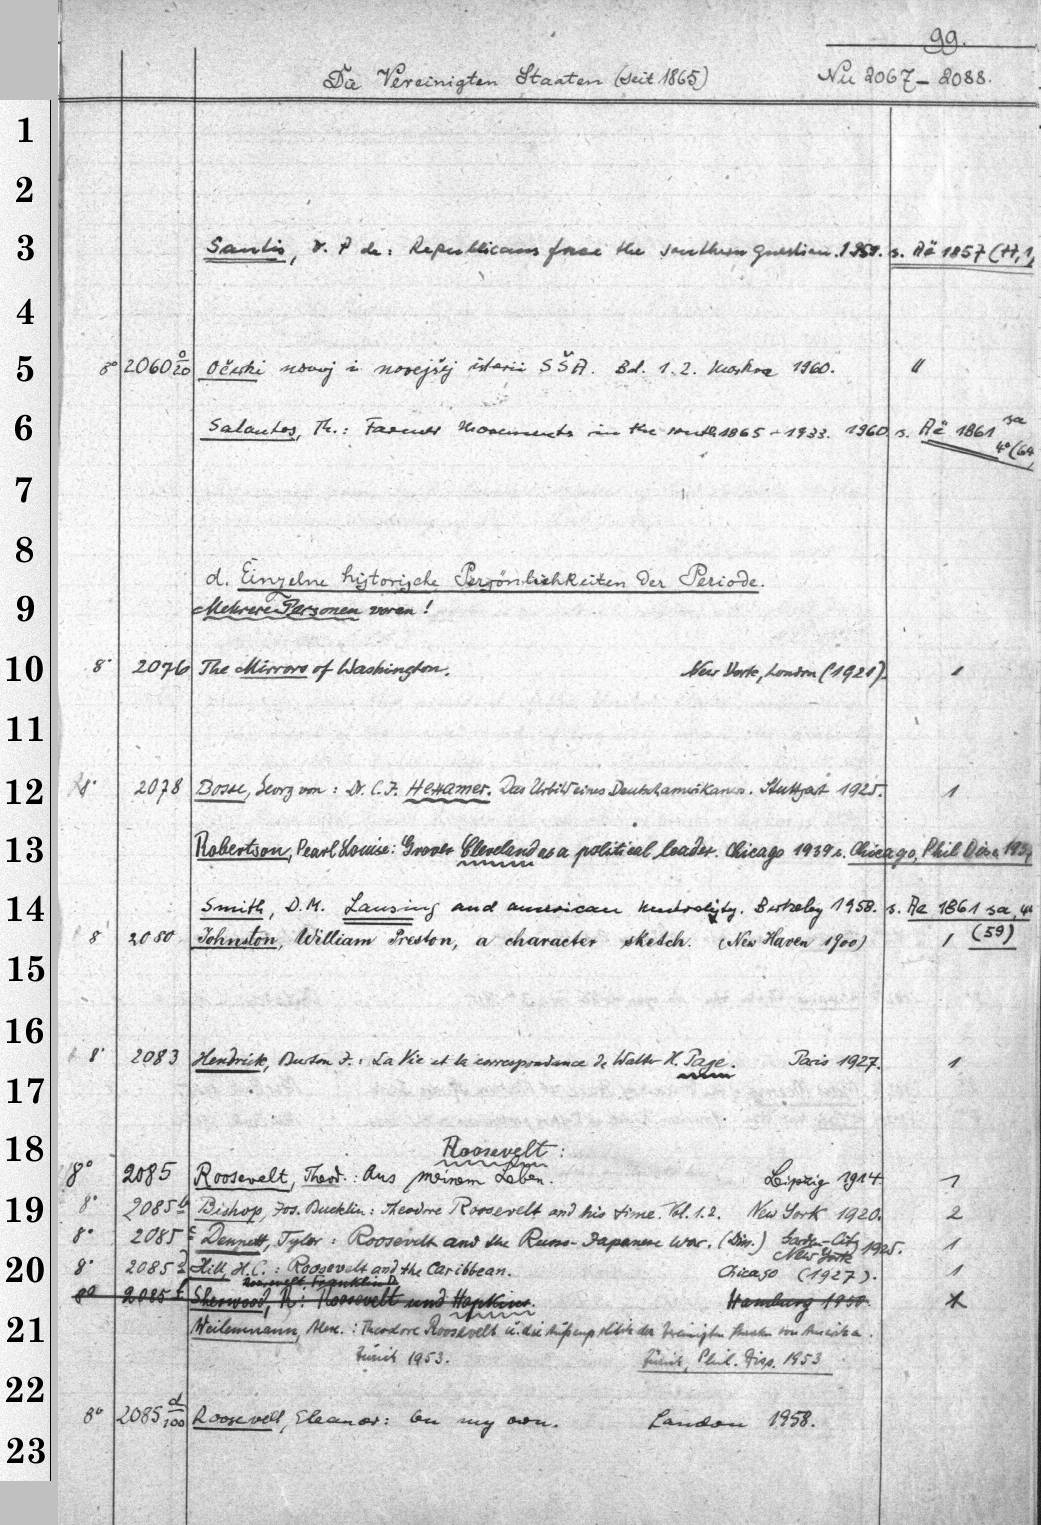 99.
Die Vereinigten Staaten (seit 1865) Nu 2067-2088.
1
2
3 Santis, V. P de: Republicans face the southern question. 1959. s. Aë 1857 (77,1)
4
5 8° 2060 o/20 Očerki novoj i novejšej istorii SŠA. Bd. 1.2. Moskva 1960. "
6 Saloutos, Th.: Farmer Movements in the South 1865-1933. 1960. s. Aë 1861 sa 4° (64
7
8
d. Einzelne historische Persönlichkeiten der Periode.
9 Mehrere Personen voran!
10 8° 2076 The Mirrors of Washington. New York, London (1921). 1
11
12 8° 2078 Bosse, Georg von: Dr. C. J. Hexamer. Das Urbild eines Deutschamerikaners. Stuttgart 1925. 1
13 Robertson, Pearl Louise: Grover Cleveland as a political leader. Chicago 1939 s. Chicago, Phil Diss. 1939
14 Smith, D. M. Lansing and american neutrality. Berkeley 1958. s. Ae 1861 sa, 4°
8° 2080 Johnston, William Preston, a character sketch. (New Haven 1900) 1 (59)
15
16
8° 2083 Hendrick, Burton J.: La Vie et la correspondance de Walter H. Page. Paris 1927. 1
17
18 Roosevelt:
8° 2085 Roosevelt, Theod.: Aus meinem Leben. Leipzig 1914 1
19 8° 2085 b Bishop, Jos. Bucklin: Theodore Roosevelt and his time. Vol. 1.2. New York 1920. 2
8° 2085 c Dennett, Tyler: Roosevelt and the Russo-Japanese War. (Diss.) Garden-City New York 1925. 1
20 8° 2085 d Hill, H.C.: Roosevelt and the Caribbean. Chicago (1927). 1
Roosevelt, Franklin D
8° 2085 f Sherwood, R: Roosevelt und Hopkins. Hamburg 1950.
21 Weilenmann, Alex.: Theodore Roosevelt u. die Außenpolitik der Vereinigten Staaten von Amerika.
Zürich 1953. Zürich, Phil. Diss. 1953
22
8° 2085 d/100 Roosevelt, Eleanor: On my own. London 1958.
23